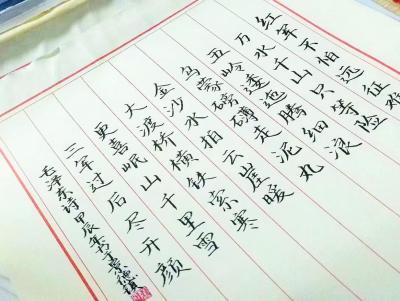 红军不怕远征难
万水千山只等险
五岭逶迤腾细浪
乌蒙磅礴走泥丸
金沙水拍云崖暖
大渡桥横铁索寒
更喜岷山千里雪
三军过后尽开颜
毛泽东诗甲辰年